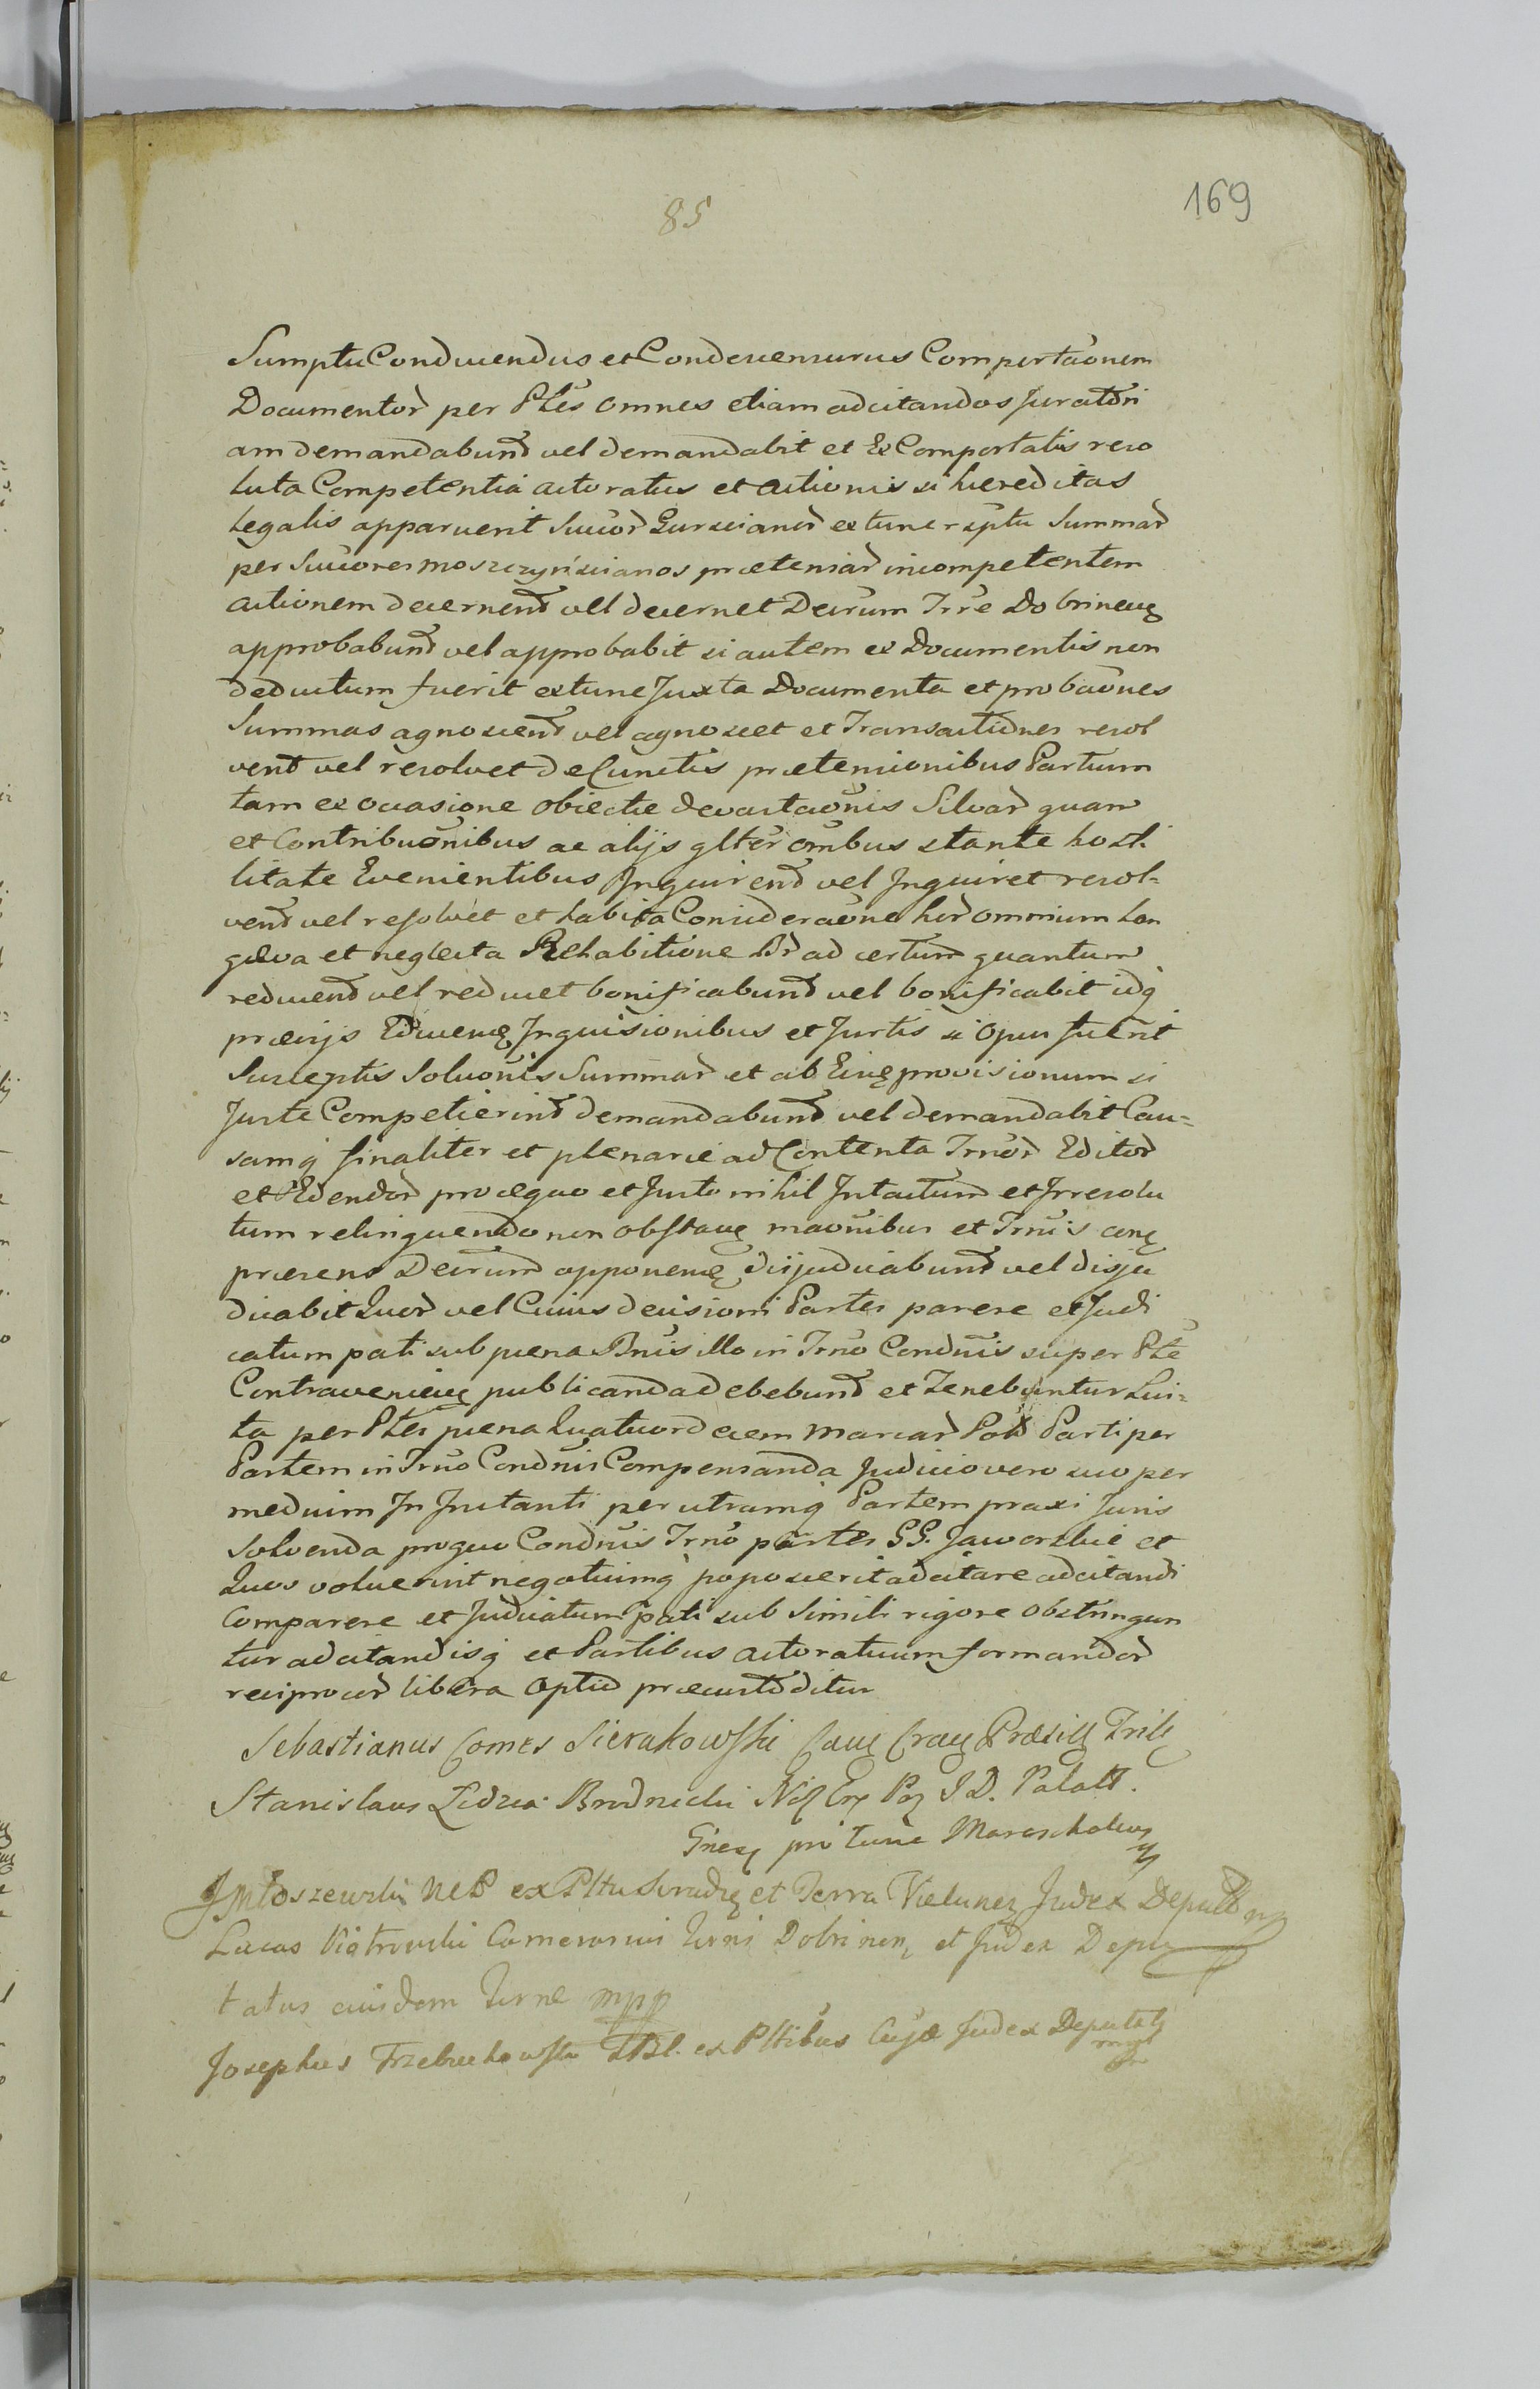 85
169
Sumptu Conducendus et Condevenrurus Comportaonem
Documentor per Ptes omnes etiam adcitandos Juratori
am demandabunt vel demandabit et Ex Comportatis reso
luta Competentia actoratus et actionis si haereditas
Legalis apparuerit Succor Gurscianor extunc rsptu Summar
per Succores moszczyńscianos praetensar incompetentem
actionem decernent vel decernet Decrum Trre Dobrinens
approbabunt vel approbabit si autem ex Documentis non
deductum fuerit extunc Juxta Documenta et probaones
Summas agnoscent vel agnoscet et Transactiones resol
vent vel resolvet de Cunctis praetensionibus Partium
tam ex occasione obiectae devastaonis Silvar quam
et Contribuonibus ac alijs glter ombus stante hosti
litate Evenientibus Inquirent vel Inquiret resol=
vent vel resolvet et habita Consideraone hor omnium lon
gaeva et neglecta Rehabitione ad certum quantum
reducent vel reducet bonificabunt vel bonificabit idq
praevijs Inquisionibus et Jurtis si opus fuerit
Susceptis Soluonis Summar et ab Eius provisionum si
Juste Competierint demandabunt vel demandabit Cau=
samq finaliter et plenarie ad Contenta Trnor Editor
et Edendor pro aequo et Justo nihil Intactum et Irresolu
tum relinquendo non obstang maonibus et Trnis
praesens Decrum opponeng dijudicabunt vel disju
dicabit Quor vel Cuius decisioni Partes parere et Judi
catum pati sub paena Bnis illo in Trno Condnis super Pte
Contravenieng publicanda debebunt et Tenebuntur Lui=
ta per Ptes paena Quatuordecem marcar Pol Parti per
Partem in Trno Condnis Compensanda Judicio vero suo per
medium In Instanti per utramq Partem praxi Juris
solvenda pro quo Condnis Trno partes GG. Jaworskie et
Quos voluerint negotiumq poposcerit adcitare adcitandi
Comparere et Judicatum pati sub simili rigore obstringun
tur adcitandisq et Partibus actoratuum formandor
reciprocor libera optio praecustoditur
Sebastianus Comes Sierakowski Praesig Trib
Stanislaus Zidzia Brodnicki J D. Palatt.
Gnes pro tunc Mareschalcus
J Młoszewski NeP ex Pltu Siradz et Terra Vielunen Judex Deputt
Lucas Piotrowski Camerarius Terris Dobrinen, et Judex Depu
tatus eiusdem Terrae mpp
Josephus Trzebuchowski ex Pltibus Cujae Judex Deputat